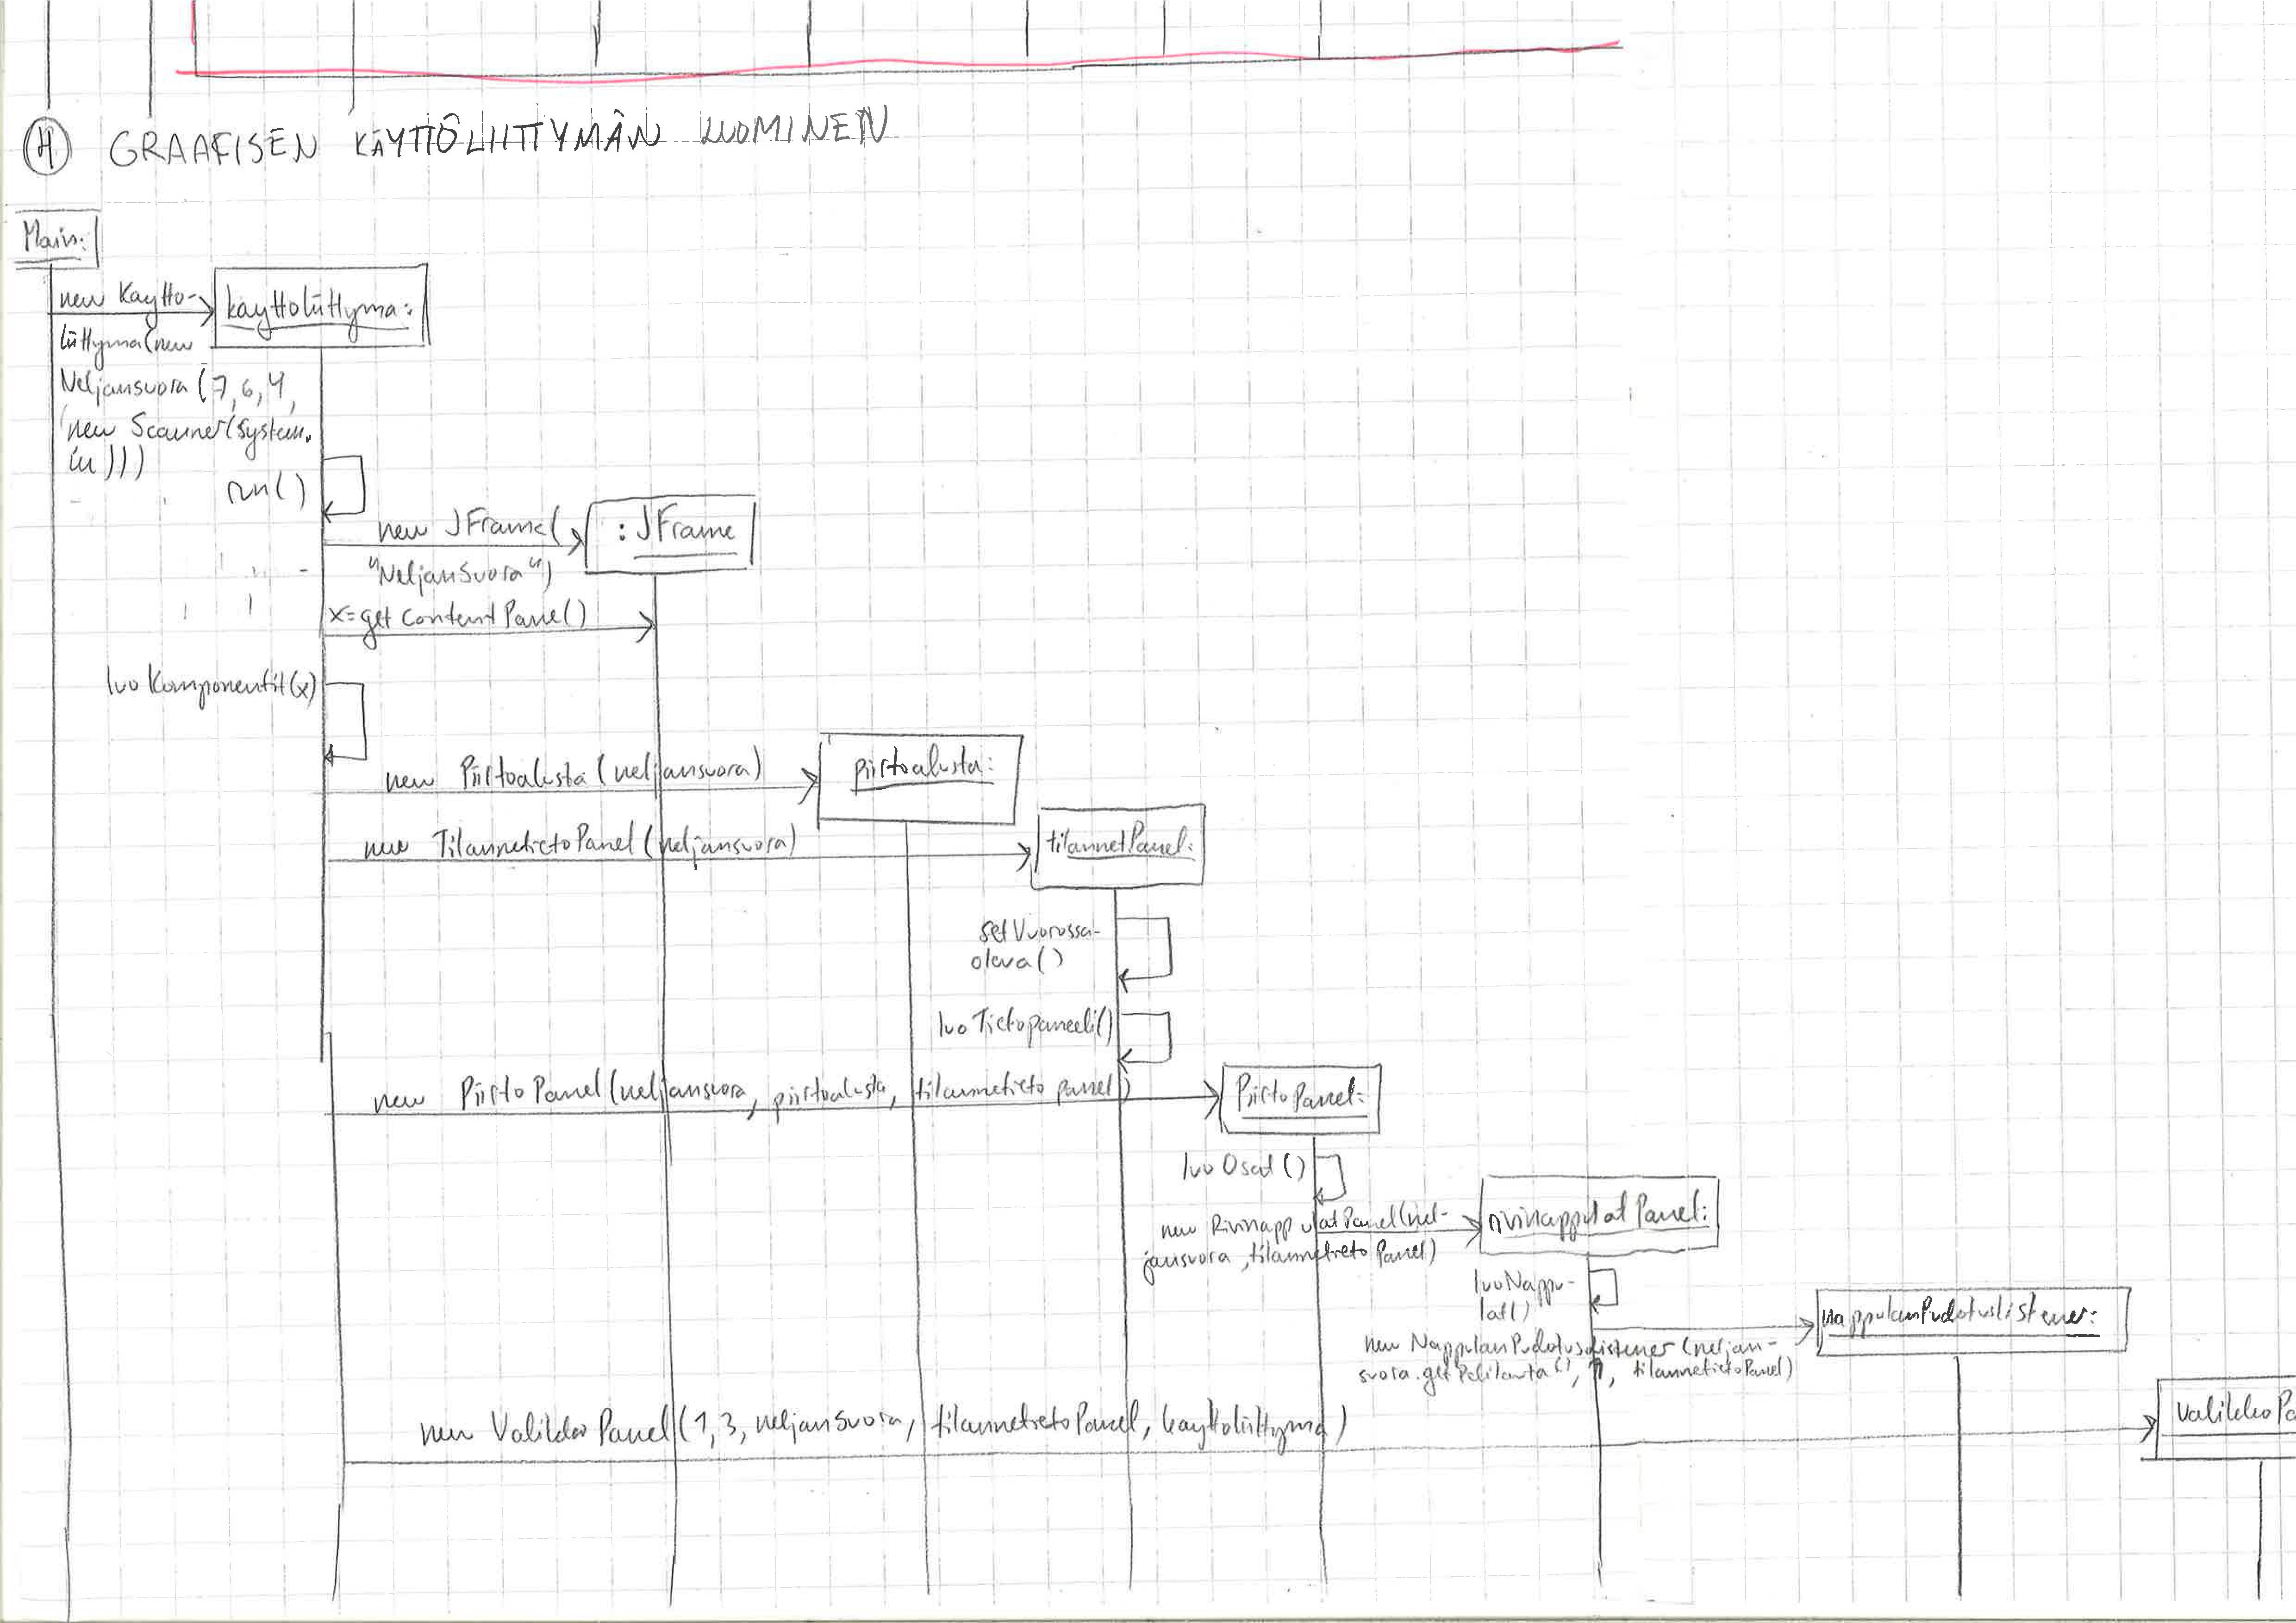 ④ GRAAFISEN KÄYTTÖLIITTYMÄN LUOMINEN
Main:
new Kaytto-
liittyma(new
Neljansuora(7,6,4,
new Scanner(System.
in)))
kayttoliittyma:
run()
new JFrame(
"NeljanSuora")
:JFrame
x=getContentPane()
luoKomponentit(x)
new Piirtoalusta(neljansuora)
piirtoalusta:
new TilannetietoPanel(neljansuora)
tilannetPanel:
setVuorossa-
oleva()
luoTietopaneeli()
new PiirtoPanel(neljansuora, piirtoalusta, tilannetieto panel)
PiirtoPanel:
luoOsat()
new RivinappulatPanel(nel-
jansuora, tilannetietoPanel)
rivinappulatPanel:
luoNappu-
lat()
nappulanPudotuslistener:
new NappulanPudotusListener(neljan-
suora.getPelilauta(), 1, tilannetietoPanel)
new ValikkoPanel(1,3, neljansuora, tilannetietoPanel, kayttoliittyma)
ValikkoPa